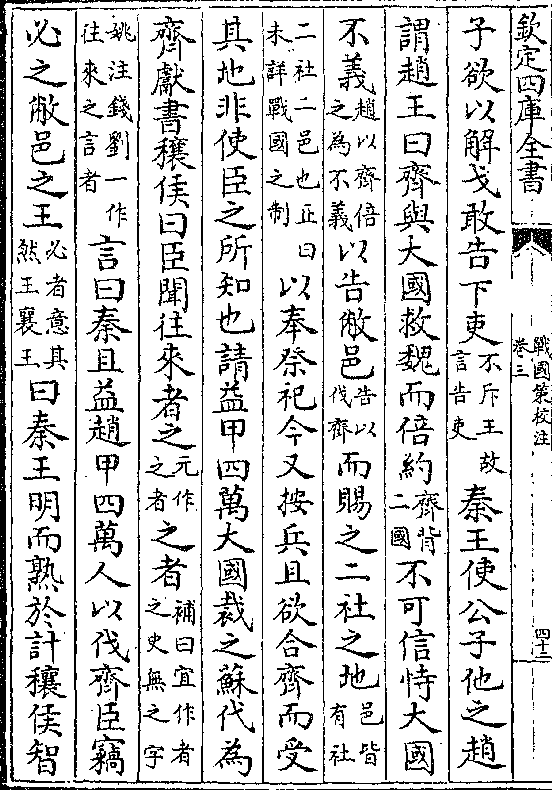 欽定四庫全書
戰國策校注
卷三
四十二
子欲以解戈敢告下吏不斥王故言告吏秦王使公子他之趙
謂趙王曰齊與大國救魏而倍約齊背二國不可信恃大國
不義趙以齊倍之為不義以告敝邑告以伐齊而賜之二社之地邑皆有社
二社二邑也正曰未詳戰國之制以奉祭祀今又按兵且欲合齊而受
其地非使臣之所知也請益甲四萬大國裁之蘇代為
齊獻書穰侯曰臣聞往來者之元作之者之者補曰宜作者之史無之字
姚注錢劉一作往來之言者言曰秦且益趙甲四萬人以伐齊臣竊
必之敝邑之王必者意其然王襄王曰秦王明而熟於計穰侯智